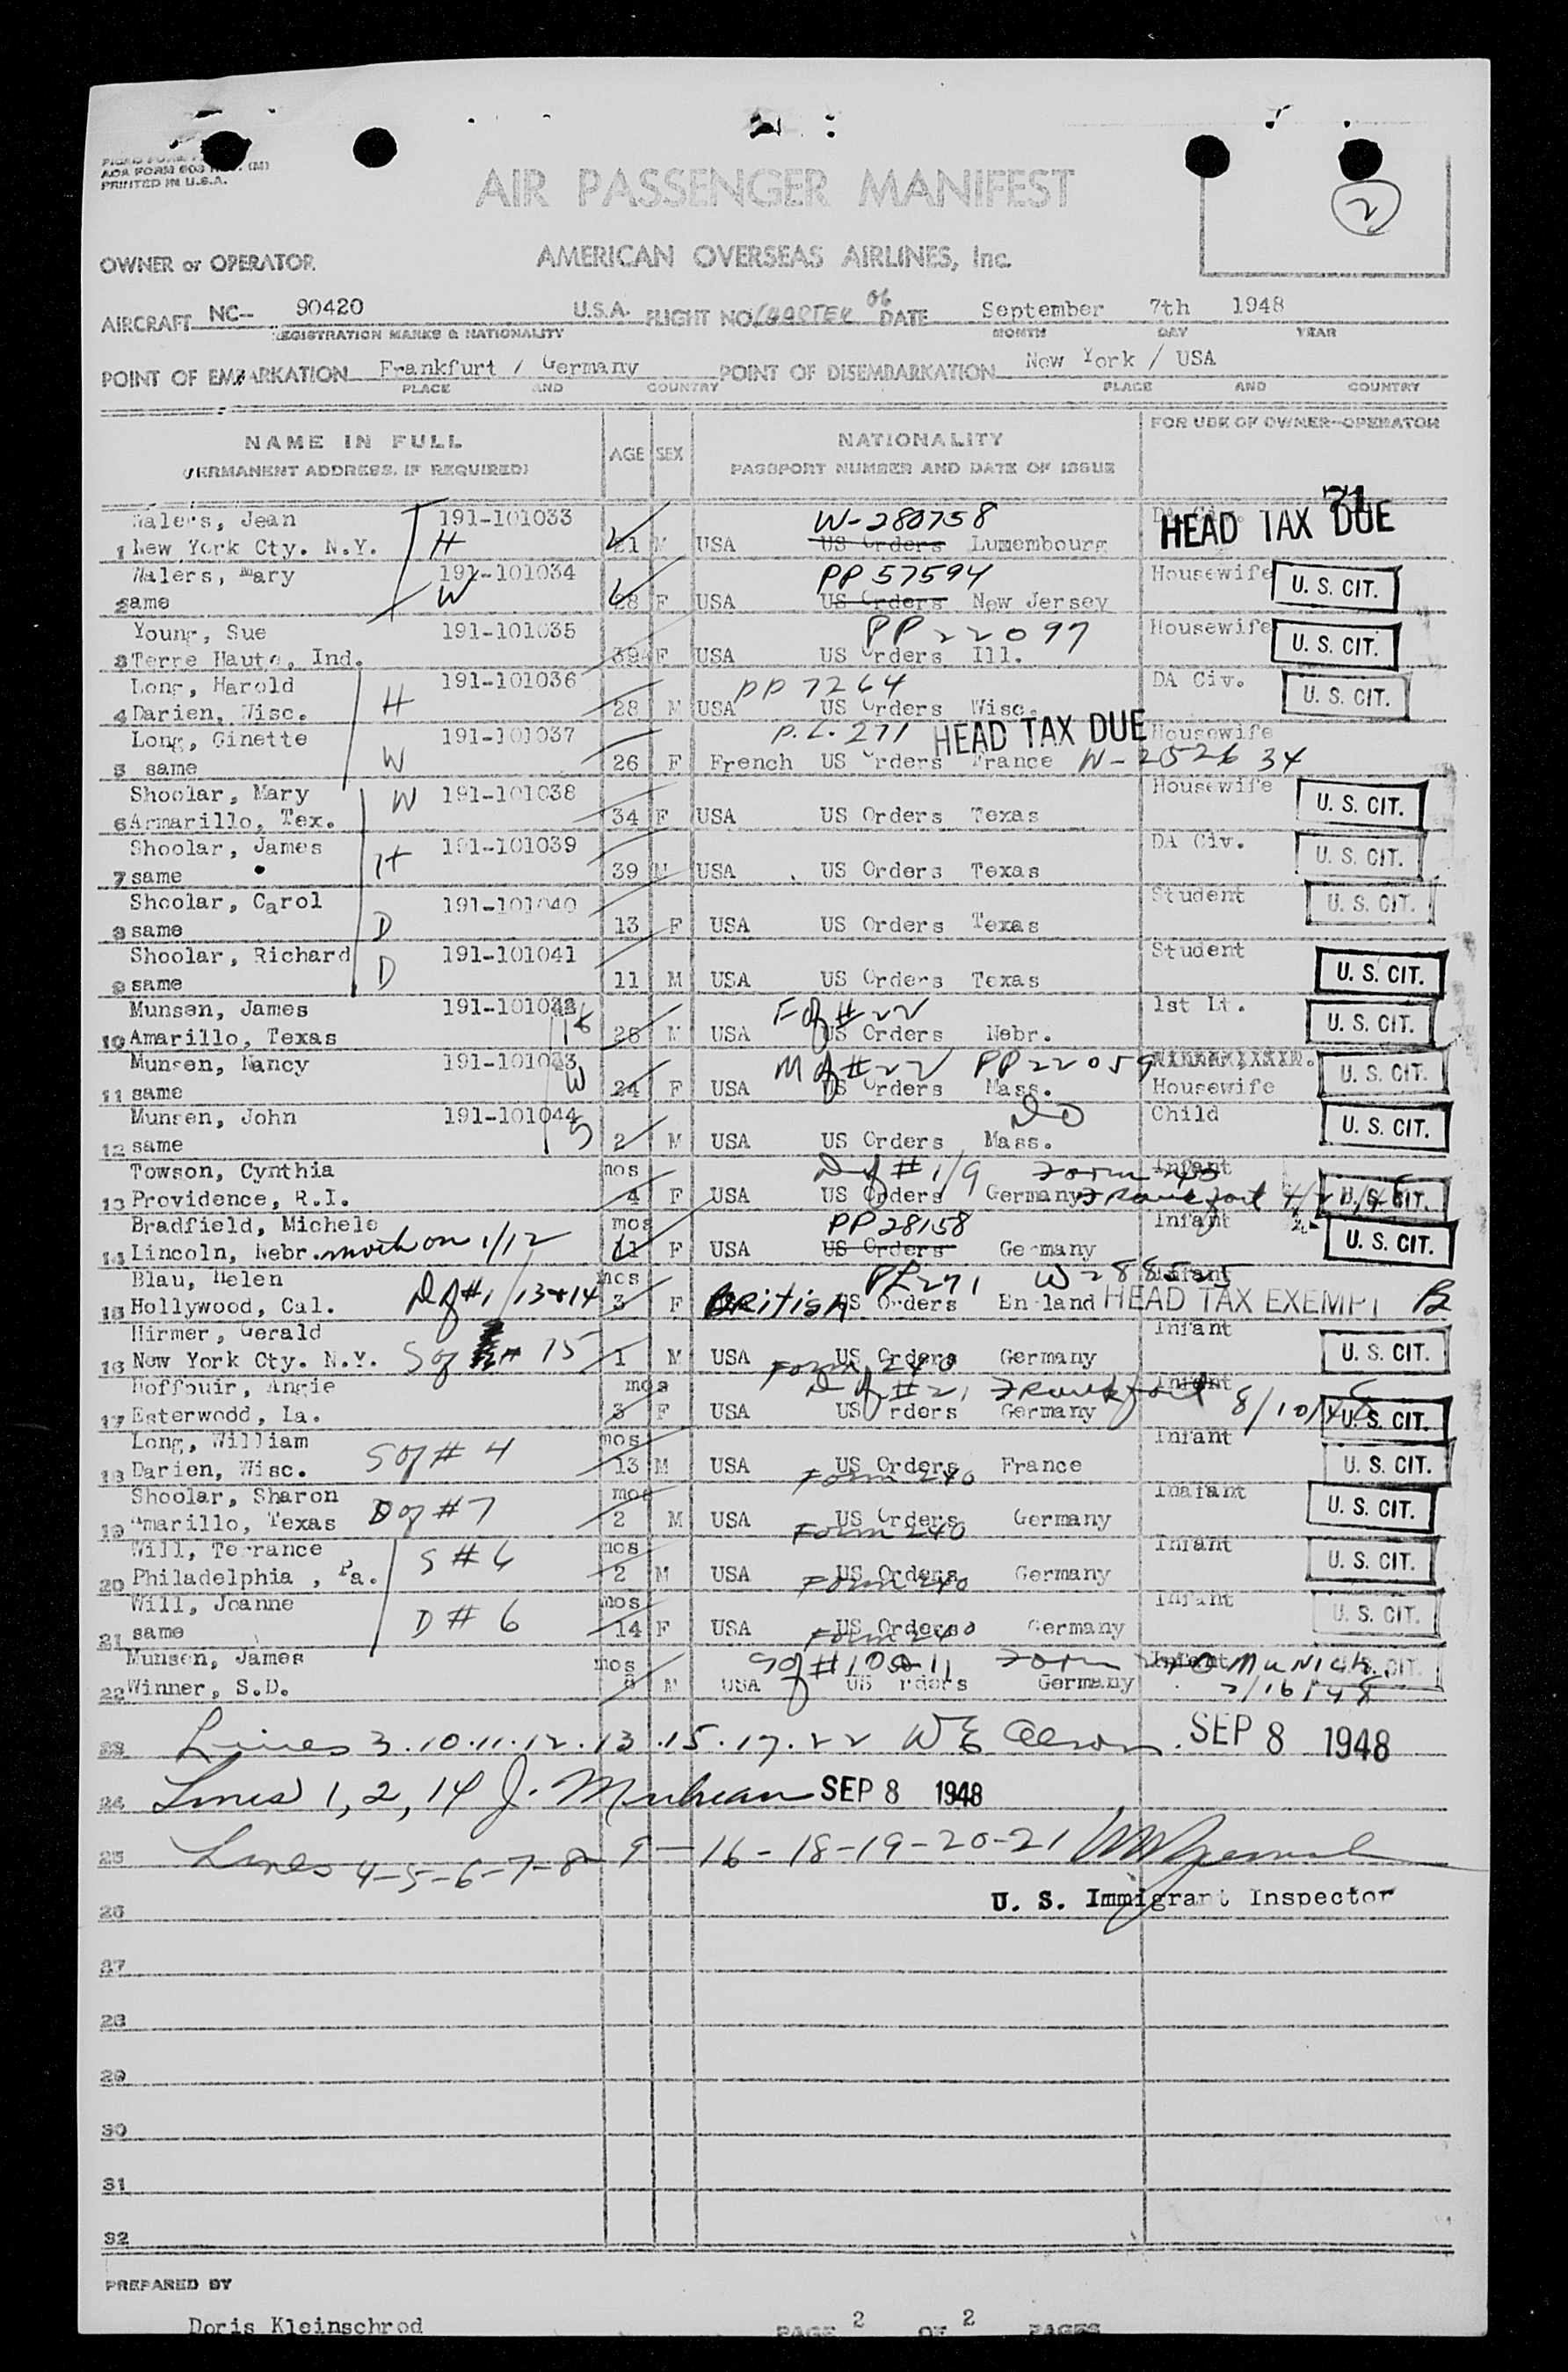 ACA FORM 603
PRINTED IN U.S.A.
AIR PASSENGER MANIFEST
2
OWNER or OPERATOR
AMERICAN OVERSEAS AIRLINES, Inc.
AIRCRAFT NC-- 90420 U.S.A. FLIGHT NO. DATE September 7th 1948
REGISTRATION MARKS & NATIONALITY MONTH DAY YEAR
POINT OF EMBARKATION Frankfurt / Germany POINT OF DISEMBARKATION New York / USA
PLACE AND COUNTRY PLACE AND COUNTRY
NAME IN FULL AGE SEX NATIONALITY FOR USE OF OWNER-OPERATOR
(PERMANENT ADDRESS, IF REQUIRED) PASSPORT NUMBER AND DATE OF ISSUE
Jean 191-101033 W-280758 HEAD TAX DUE
1 New York Cty. N.Y. H 21 M USA US Orders Luxembourg
Mary 191-101034 PP 57594 Housewife U. S. CIT.
2 same W 28 F USA US Orders New Jersey
Young, Sue 191-101035 PP 22097 Housewife U. S. CIT.
3 Terre Haute, Ind. 39 F USA US Orders Ill.
Long, Harold 191-101036 PP 7264 DA Civ. U. S. CIT.
4 Darien, Wisc. H 28 M USA US Orders Wisc.
Long, Ginette 191-101037 P.L. 271 HEAD TAX DUE Housewife
5 same W 26 F French US Orders France W-252634
Shoolar, Mary W 191-101038 Housewife U. S. CIT.
6 Armarillo, Tex. 34 F USA US Orders Texas
Shoolar, James 191-101039 DA Civ. U. S. CIT.
7 same H 39 M USA US Orders Texas
Shoolar, Carol 191-101040 Student U. S. CIT.
8 same D 13 F USA US Orders Texas
Shoolar, Richard 191-101041 Student U. S. CIT.
9 same D 11 M USA US Orders Texas
Munsen, James F of #22 1st Lt. U. S. CIT.
10 Amarillo, Texas M USA US Orders Nebr.
Munsen, Nancy 191-101043 M of #22 PP 22059 U. S. CIT.
11 same W 24 F USA US Orders Mass. Housewife
Munsen, John 191-101044 DO Child U. S. CIT.
12 same S 2 M USA US Orders Mass.
Towson, Cynthia mos D of # 1/9 Form Infant
13 Providence, R.I. 4 F USA US Orders Germany U. S. CIT.
Bradfield, Michele mos PP 28158 Infant
14 Lincoln, Nebr. 11 F USA US Orders Germany U. S. CIT.
Blau, Helen mos PL 271 Infant
15 Hollywood, Cal. D of #1/13+14 3 F British US Orders England HEAD TAX EXEMPT
Hirmer, Gerald Infant
16 New York Cty. N.Y. S of # 15 1 M USA US Orders Germany U. S. CIT.
Angie mos D of #21 Frankfort Infant
17 Esterwood, La. 3 F USA US Orders Germany 8/10/48 U. S. CIT.
Long, William mos Infant
18 Darien, Wisc. S of # 4 13 M USA US Orders France U. S. CIT.
Form 240
Shoolar, Sharon mos U. S. CIT.
19 Amarillo, Texas D of #7 2 M USA US Orders Germany
Form 240
Will, Terrance S # 6 mos Infant U. S. CIT.
20 Philadelphia , Pa. 2 M USA US Orders Germany
Form 240
Will, Joanne mos Infant U. S. CIT.
21 same D # 6 14 F USA US Orders Germany
Munsen, James mos S of #10 Munich
22 Winner, S.D. M USA US Orders Germany
23 Lines 3.10.11.12.13.15.17.22 SEP 8 1948
24 Lines 1, 2, 14 SEP 8 1948
25 Lines 4-5-6-7-8 9-16-18-19-20-21
U. S. Immigrant Inspector
26
27
28
29
30
31
32
PREPARED BY
Doris Kleinschrod PAGE 2 OF 2 PAGES